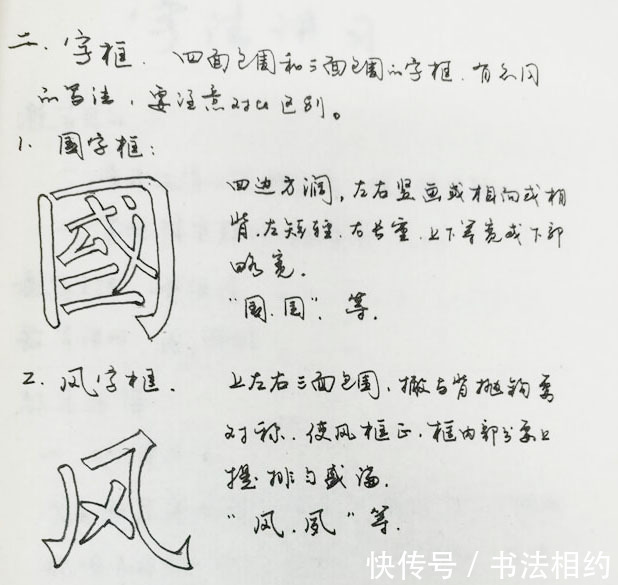 二、字框. 四面包围和三面包围的字框, 有不同
的写法, 要注意对比区别。
1. 国字框:
國
四边方润, 左右竖画或相向或相
背, 左短轻, 右长重, 上下等宽或下部
略宽.
"国. 国". 等.
2. 风字框.
风
上左右三面包围, 撇与背抛钩要
对称. 使风框正, 框内部分要上
提, 排匀盛满.
"风. 夙" 等.
快传号 / 书法相约